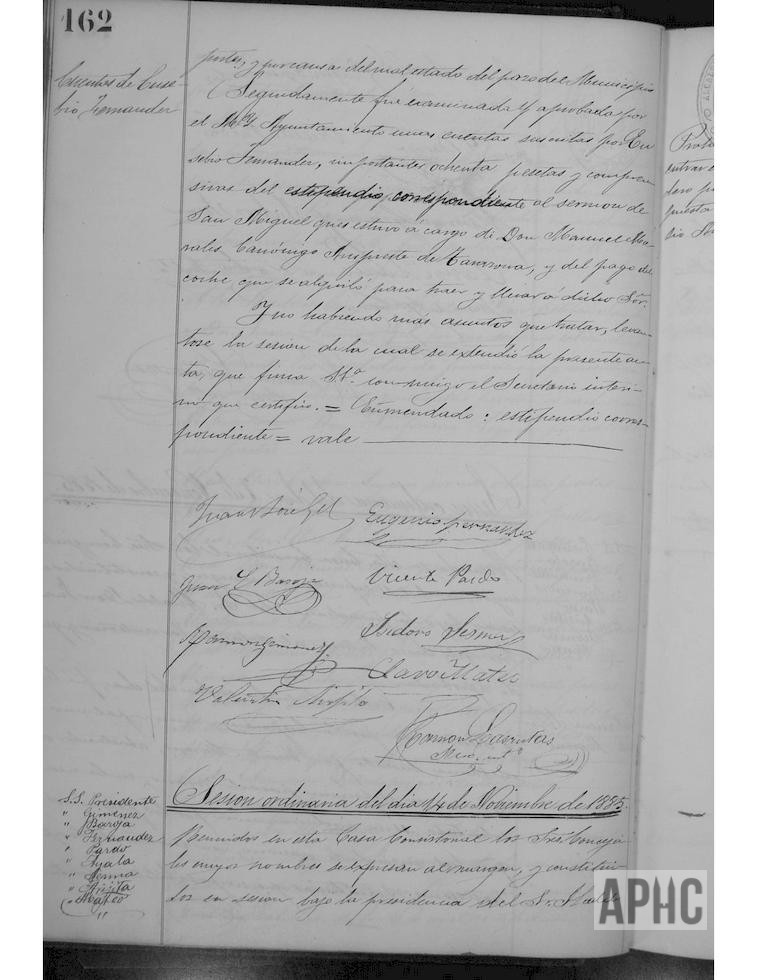 162
Cuentas de Euse-
bio Fernandez
puntos, y por causa del mal estado del piso del Municipio
Segundamente fué examinada y aprobada por
el M. Y. Ayuntamiento unas cuentas suscritas por Eu
sebio Fernandez, importantes ochenta pesetas y compren
sivas del estipendio correspondiente al sermon de
San Miguel que estuvo á cargo de Don Manuel Mo
rales Canónigo Arcipreste de Tarazona, y del pago del
coche que se alquiló para traer y llevar á dicho Sor.
Y no habiendo más asuntos que tratar, levan
tose la sesion de la cual se extendió la presente ac
ta, que firma S.Sª. conmigo el Secretario interi-
no que certifico. = Enmendado: estipendio corres-
pondiente = vale
Juan José Gil Eugenio Fernandez
Juan C Baroja Vicente Pardo
Ramon Gimenez Isidoro Sesma
Claro Mateo
Valentin
Ramon
Srio. intº
Sesion ordinaria del dia 14 de Noviembre de 1885.
S.S. Presidente
" Gimenez
" Baroja
" Fernandez
" Pardo
" Ayala
" Sesma
" Mateo
"
Reunidos en esta Casa Consistorial los Sres Conceja
les cuyos nombres se expresan al margen, y constitui-
dos en sesion bajo la presidencia del Sr. Alcalde
APHC